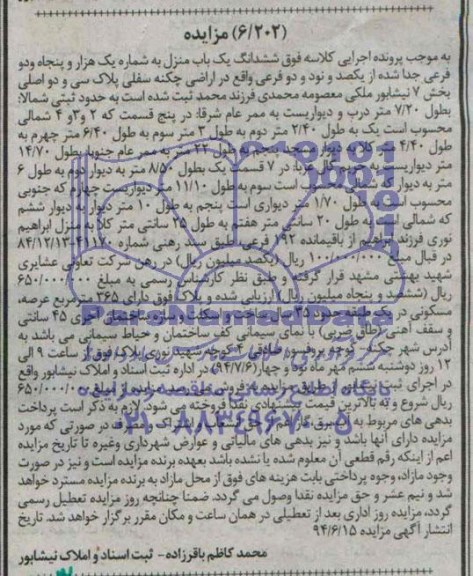 (۶/۲۰۲) مزایده
به موجب پرونده اجرایی کلاسه فوق ششدانگ یک باب منزل به شماره یک هزار و پنجاه ودو
فرعی جدا شده از یکصد و نود و دو فرعی واقع در اراضی چکنه سفلی پلاک سی و دو اصلی
بخش ۷ نیشابور ملکی معصومه محمدی فرزند محمد ثبت شده است به حدود ثبتی شمالا:
بطول ۷/۲۰ متر درب و دیواریست به ممر عام شرقا: در پنج قسمت که ۲ و۳و ۴ شمالی
محسوب است یک به طول ۲/۴۰ متر دوم به طول ۳ متر سوم به طول ۶/۴۰ متر چهرم به
طول ۴/۴۰ متر کلا به دیوار پنجم به طول ۲۲ متر به ممر عام جنوبا بطول ۱۴/۷۰
متر دیواریست به در ۷ قسمت یک بطول ۸/۵۰ متر به دیوار دوم به طول ۶
متر به دیوار که شمالی محسوب است سوم به طول ۱۱/۱۰ متر دیواریست چهارم که جنوبی
محسوب است به طول ۱/۷۰ متر دیواری است پنجم به طول ۱۰ متر دیوار به دیوار ششم
که شمالی است به طول ۲۰ سانتی متر هفتم به طول ۲۵ سانتی متر کلا به منزل ابراهیم
نوری فرزند ابراهیم از باقیمانده ۱۹۲ فرعی طبق سند رهنی شماره ۴۱۱۷۰-۸۴/۱۲/۱۳
در قبال مبلغ ۱۰۰/۰۰۰/۰۰۰ ریال (یکصد میلیون ریال) در رهن شرکت تعاونی عشایری
شهید بهشتی مشهد قرار گرفته و طبق نظر کارشناس رسمی به مبلغ ۶۵۰/۰۰۰/۰۰۰
ریال (ششصد و پنجاه میلیون ریال) ارزیابی شده و پلاک فوق دارای ۳۶۵ مترمربع عرصه،
مسکونی در یک طبقه حدود ۴۵ سانتی
و سقف آهنی (طاق ضربی) با نمای سیمانی کف ساختمان و حیاط سیمانی می باشد به
آدرس شهر چکنه کوچه شهید نوری پلاک فوق از ساعت ۹ الی
۱۲ روز دوشنبه ششم مهر ماه نود و چهار (۹۴/۷/۶) در اداره ثبت اسناد و املاک نیشابور واقع
در اجرای ثبت از طریق مزایده به فروش مبلغ ۶۵۰/۰۰۰/۰۰۰
ریال شروع و به بالاترین قیمت پیشنهادی نقدا فروخته می شود. لازم به ذکر است پرداخت
بدهی های مربوط به در صورتی که مورد
مزایده دارای آنها باشد و نیز بدهی های مالیاتی و عوارض شهرداری وغیره تا تاریخ مزایده
اعم از اینکه رقم قطعی آن معلوم شده یا نشده باشد بعهده برنده مزایده است و نیز در صورت
وجود مازاد، وجوه پرداختی بابت هزینه های فوق از محل مازاد به برنده مزایده مسترد خواهد
شد و نیم عشر و حق مزایده نقدا وصول می گردد. ضمنا چنانچه روز مزایده تعطیل رسمی
گردد، مزایده روز اداری بعد از تعطیلی در همان ساعت و مکان مقرر برگزار خواهد شد. تاریخ
انتشار آگهی مزایده ۹۴/۶/۱۵
محمد کاظم باقرزاده - ثبت اسناد و املاک نیشابور
ParsNamadData
پایگاه اطلاع رسانی مناقصه و مزایده
۰۲۱-۸۸۳۴۹۶۷۰-۵